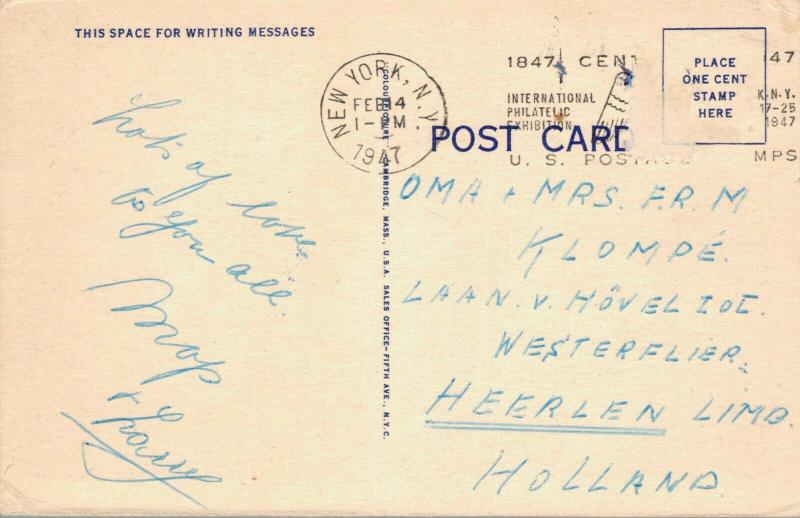 THIS SPACE FOR WRITING MESSAGES
Lots of love
to you all.
Mop
& Larry
"COLOURPICTURE", CAMBRIDGE, MASS., U.S.A. SALES OFFICE-FIFTH AVE., N.Y.C.
NEW YORK, N.Y.
FEB 4
1-PM
1947
1847 CENT
INTERNATIONAL
PHILATELIC
EXHIBITION
U. S. POSTAGE
47
K.N.Y.
17-25
1947
MPS
PLACE
ONE CENT
STAMP
HERE
POST CARD
OMA + MRS. F.R.M
KLOMPÉ.
LAAN. V. HÖVEL TOT
WESTERFLIER.
HEERLEN LIMB.
HOLLAND